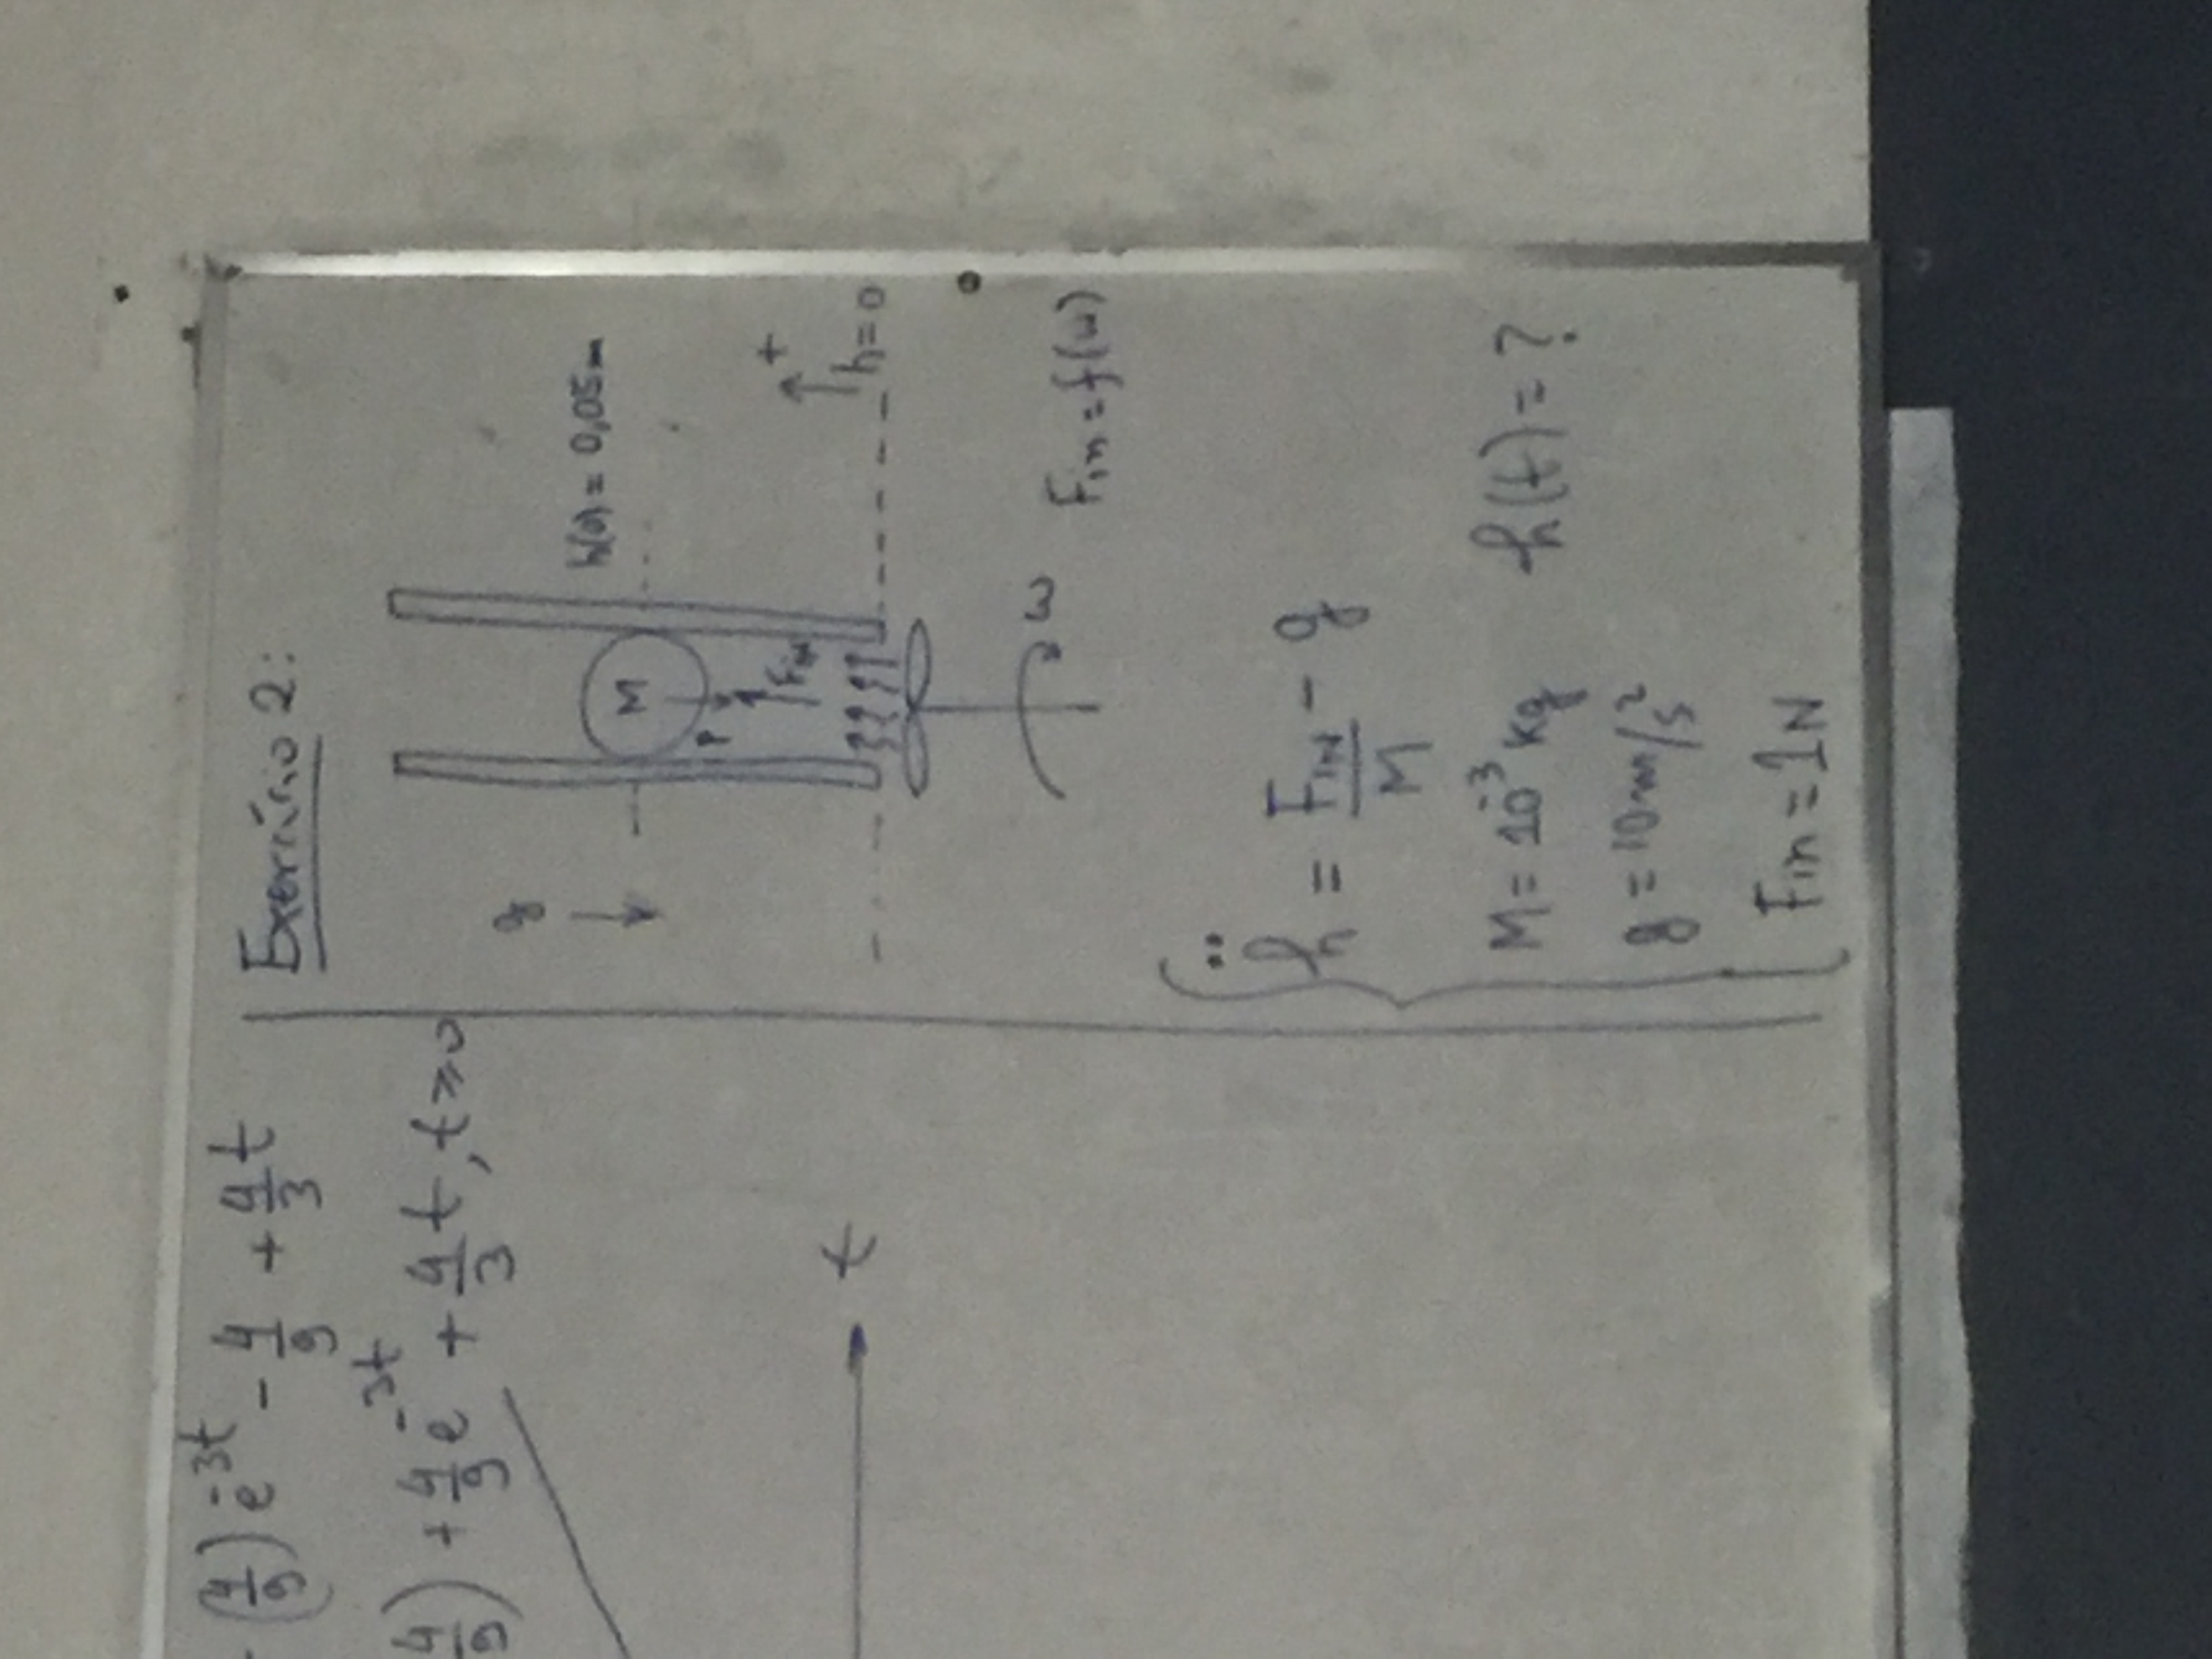 (4/9) e^-3t - 4/9 + 4/3 t
4/9) + 4/9 e^-3t + 4/3 t, t ≥ 0
t
Exercício 2:
g
h(0) = 0,05m
M
P
FIN
+
h=0
ω
Fin = f(ω)
ḧ = FIN/M - g
M = 10^-3 kg
h(t) = ?
g = 10m/s²
Fin = 1N